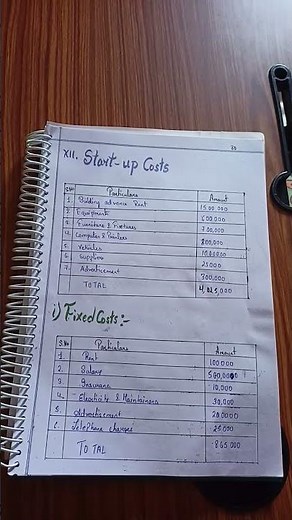 30
XII. Start-up Costs
S.No Particulars Amount
1. Building advance Rent 1500,000
2. Equipments 600000
3. Furniture & Fixtures 300,000
4. Computer & Printers 800,000
5. Vehicles
6. Supplies 25000
7. Advertisement 300,000
TOTAL
i) Fixed Costs:-
S.No Particulars Amount
1. Rent 100000
2. Salary
3. Insurance 10,000
4. Electricity & Maintainence 30,000
5. Advertisement 200000
6. Telephone charges 25000
TOTAL 865,000